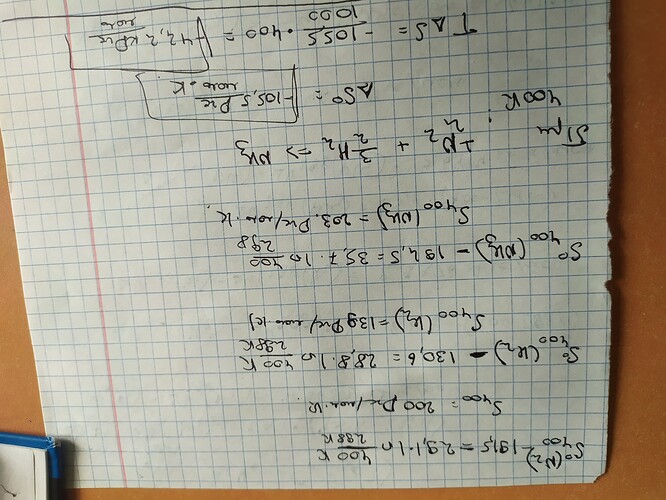 S⁰₄₀₀(N₂) - 191,5 = 29,1 · ln 400K/298K
S₄₀₀ = 200 Дж/моль·К
S⁰₄₀₀(H₂) - 130,6 = 28,8 · ln 400K/298K
S₄₀₀(H₂) = 139 Дж/моль·К)
S⁰₄₀₀(NH₃) - 192,5 = 35,7 · ln 400/298
S₄₀₀(NH₃) = 203. Дж/моль·К.
При 400К: 1/2 N₂ + 3/2 H₂ => NH₃
ΔS⁰ = -105,5 Дж/моль·К
TΔS = -105,5/1000 · 400 = -42,2 кДж/моль